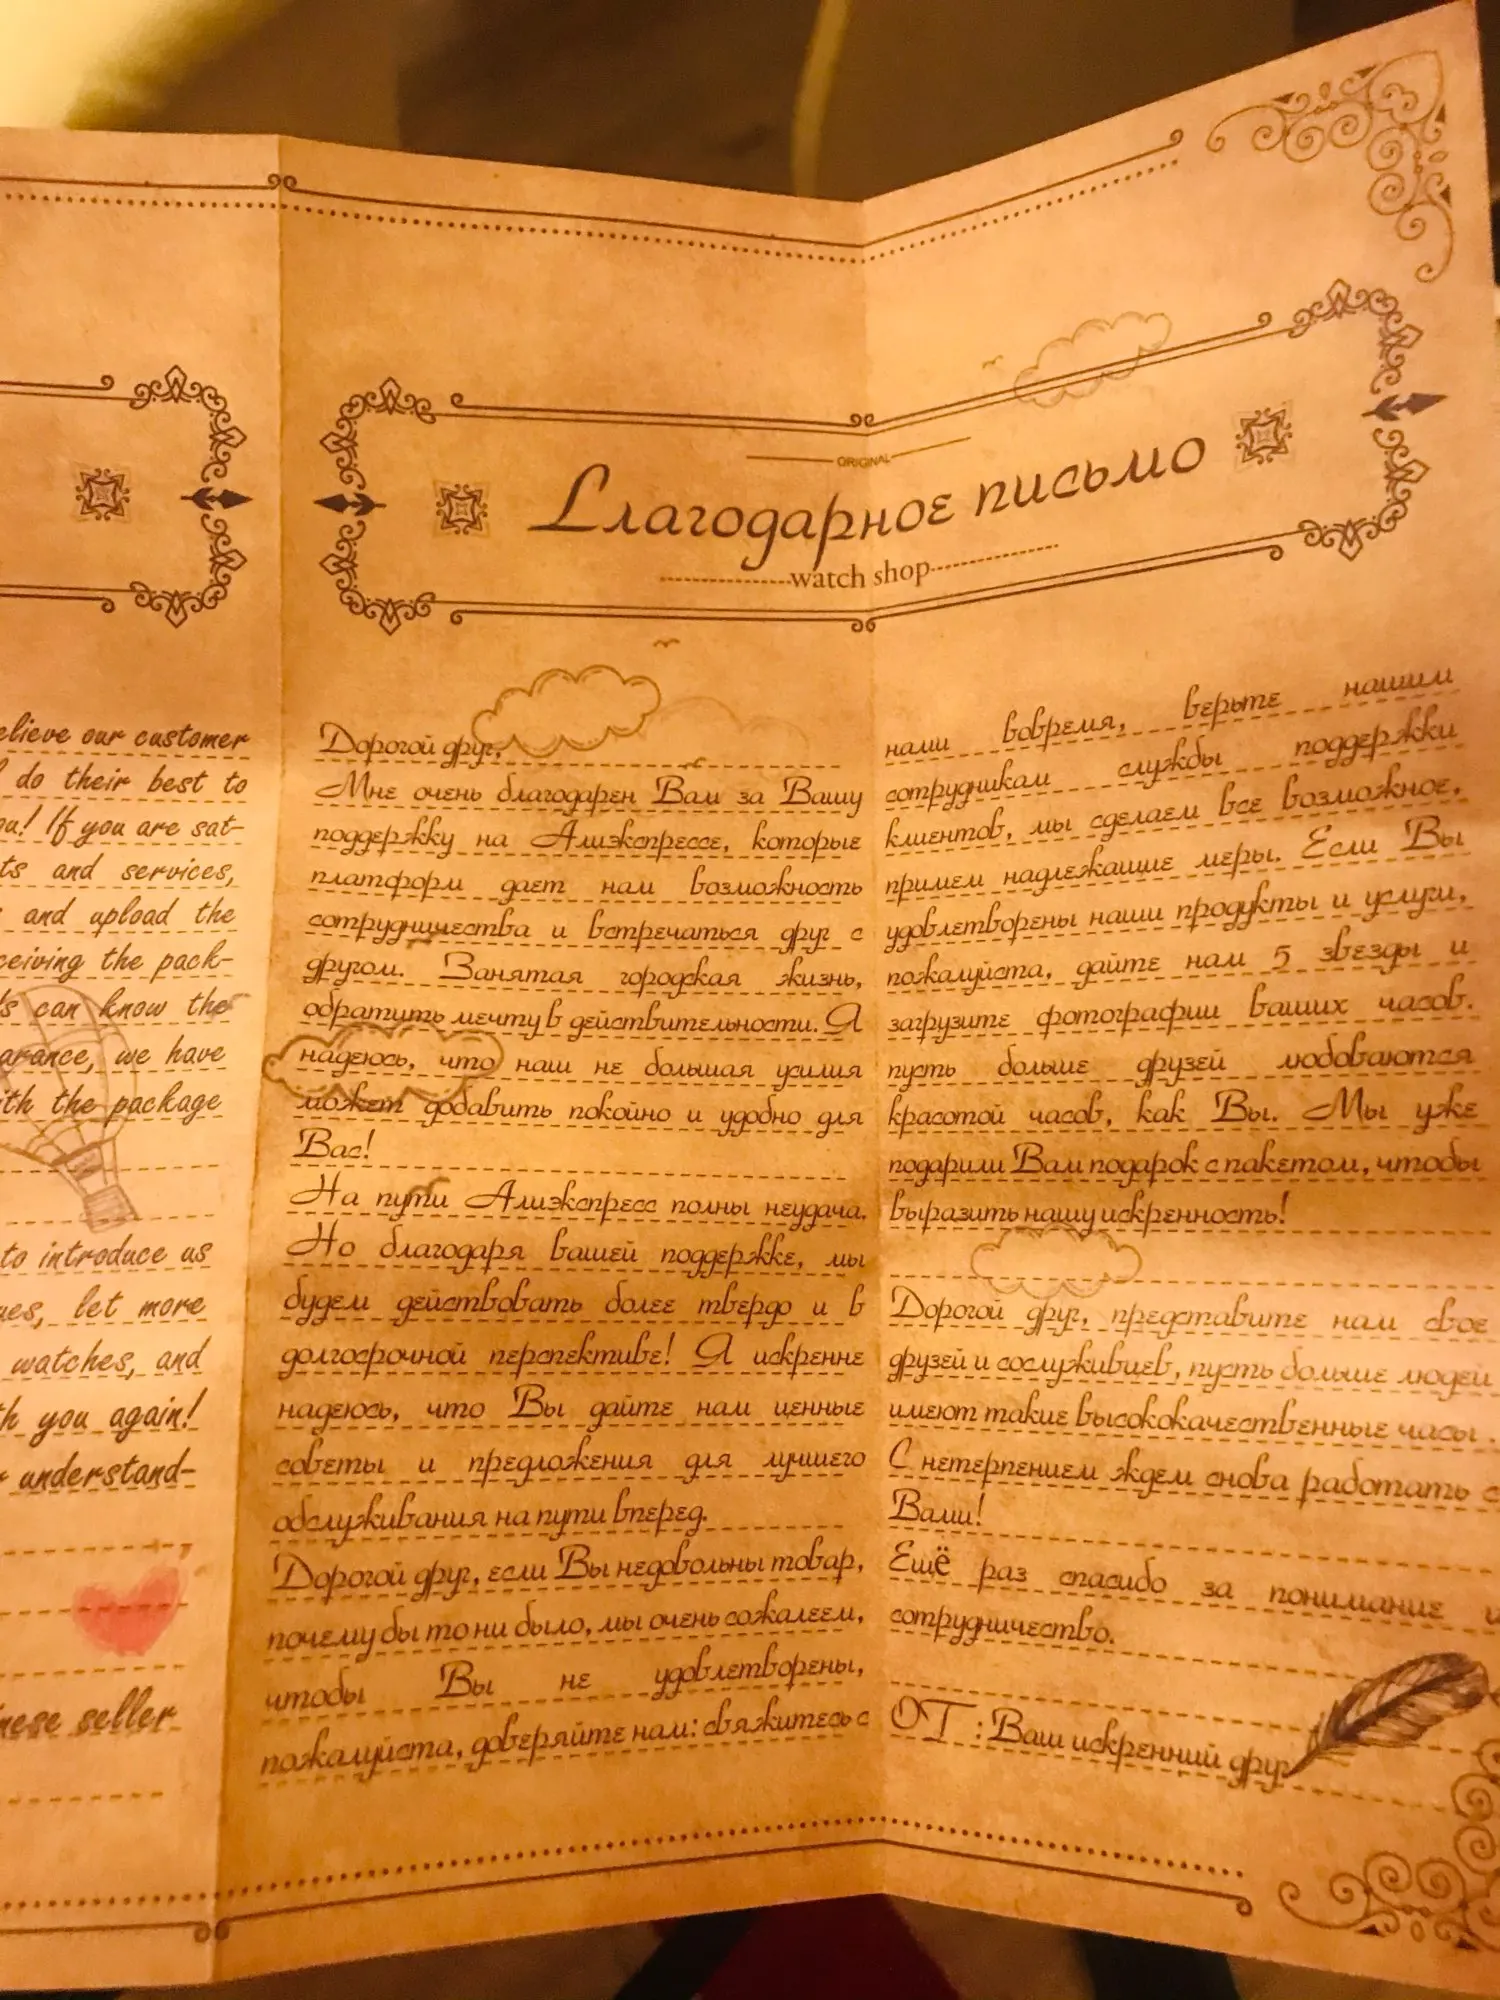 elieve our customer
do their best to
ou! If you are sat-
ts and services,
and upload the
ceiving the pack-
s can know the
arance, we have
ith the package
to introduce us
ues, let more
watches, and
th you again!
understand-
nese seller
ORIGINAL
Благодарное письмо
watch shop
Дорогой друг,
Мне очень благодарен Вам за Вашу
поддержку на Алиэкспрессе, которые
платформ дает нам возможность
сотрудничества и встречаться друг с
другом. Занятая городская жизнь,
обратить мечту в действительности. Я
надеюсь, что наш не большая усилия
может добавить покойно и удобно для
Вас!
На пути Алиэкспресс полны неудача.
Но благодаря вашей поддержке, мы
будем действовать более твердо и в
долгосрочной перспективе! Я искренне
надеюсь, что Вы дайте нам ценные
советы и предложения для лучшего
обслуживания на пути вперед.
Дорогой друг, если Вы недовольны товар,
почему бы то ни было, мы очень сожалеем,
чтобы Вы не удовлетворены,
пожалуйста, доверяйте нам: свяжитесь с
нами вовремя, верьте нашим
сотрудникам службы поддержки
клиентов, мы сделаем все возможное,
примем надлежащие меры. Если Вы
удовлетворены наши продукты и услуги,
пожалуйста, дайте нам 5 звезды и
загрузите фотографии ваших часов.
пусть больше друзей любоваются
красотой часов, как Вы. Мы уже
подарили Вам подарок с пакетом, чтобы
выразить нашу искренность!
Дорогой друг, представите нам свое
друзей и сослуживцев, пусть больше людей
имеют такие высококачественные часы.
С нетерпением ждем снова работать с
Вами!
Ещё раз спасибо за понимание и
сотрудничество.
ОТ: Ваш искренний друг